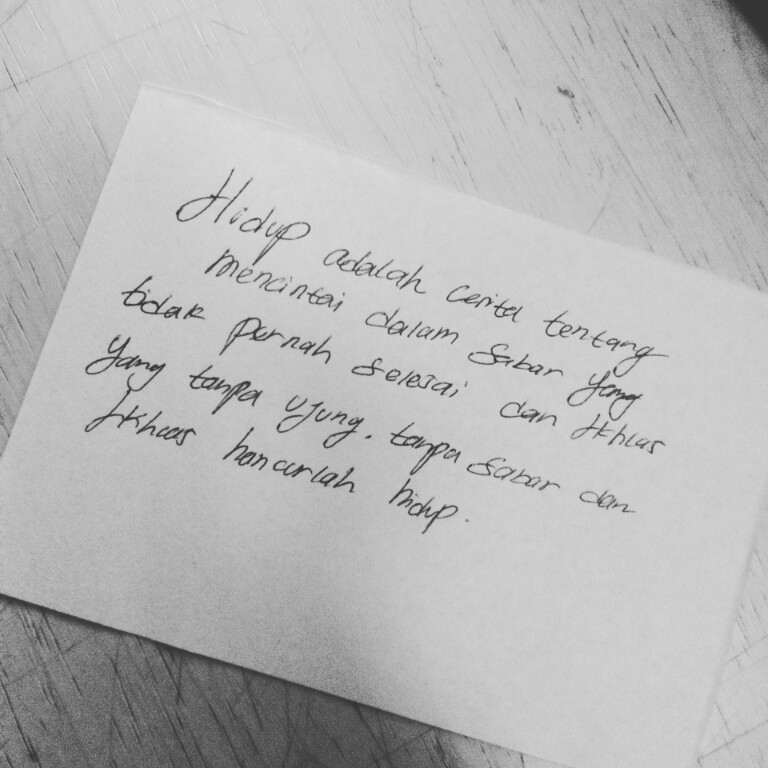 Hidup adalah cerita tentang
mencintai dalam sabar yang
tidak pernah selesai dan Ikhlas
yang tanpa ujung. tanpa sabar dan
Ikhlas hancurlah hidup.